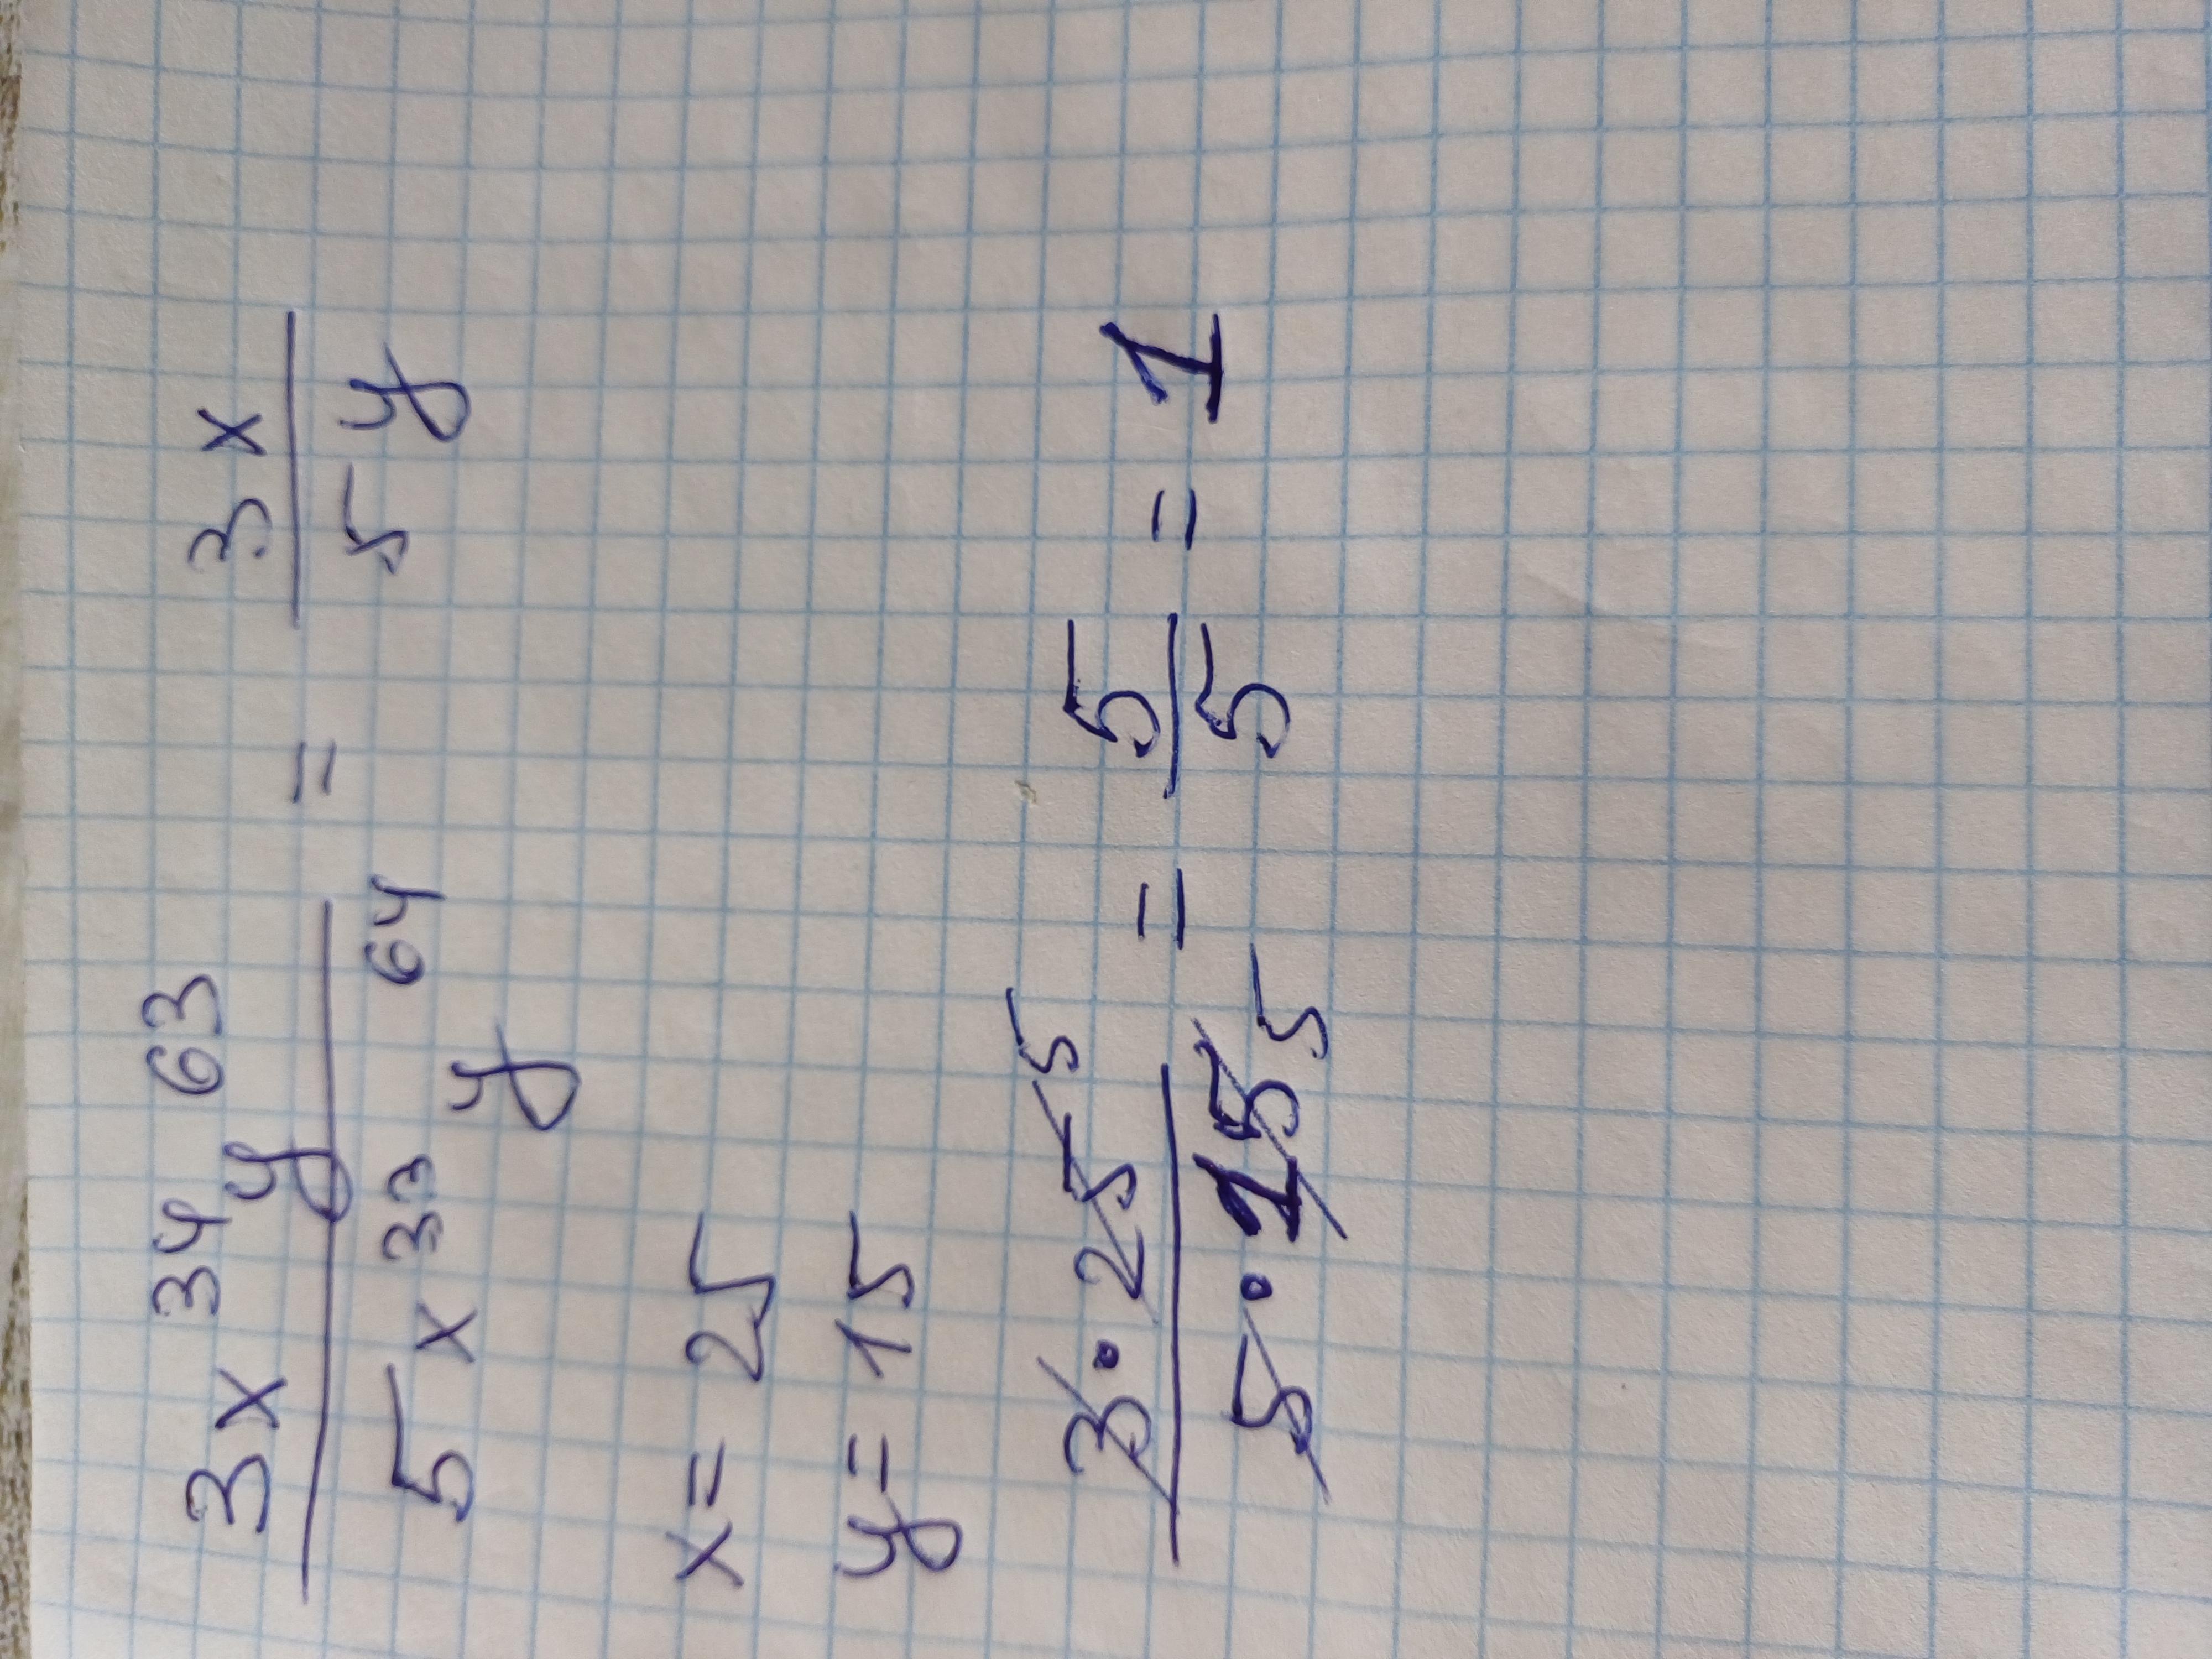 3x³⁴y⁶³ / 5x³³y⁶⁴ = 3x / 5y
x = 25
y = 15
3 · 25 ⁵ / 5 · 15 ₅ = 5 / 5 = 1